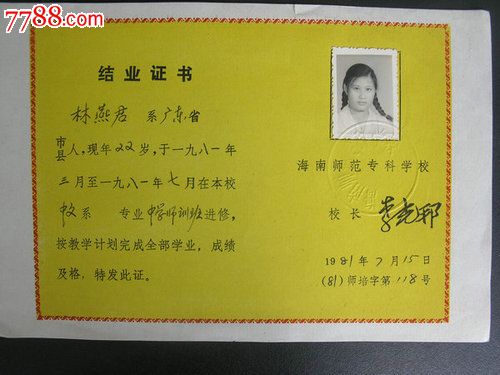 7788.com
结业证书
林燕君 系广东省
市
县人，现年22岁，于一九八一年
三月至一九八一年七月在本校
中文系 专业中学师训班进修，
按教学计划完成全部学业，成绩
及格，特发此证。
海南师范专科学校
校长
1981年7月15日
(81)师培字第118号